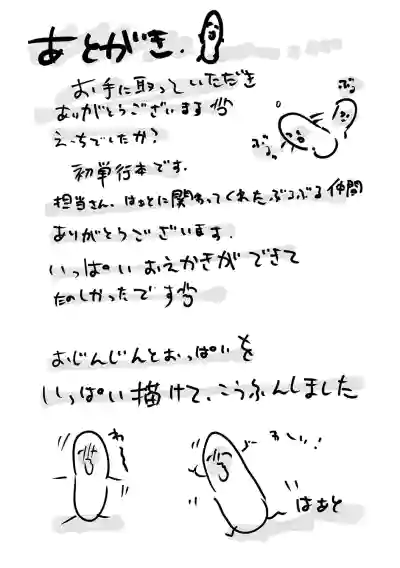 あとがき.
お手に取っていただき
ありがとうございます
えっちでしたか?
初単行本です.
担当さん、はぁとに関わってくれたぶつぶる仲間
ありがとうございます.
いっぱいおえかきができて
たのしかったです
おじんじんとおっぱいを
いっぱい描けて、こうふんしました
ぶる
ぶる
わ〜
わーい!
はぁと